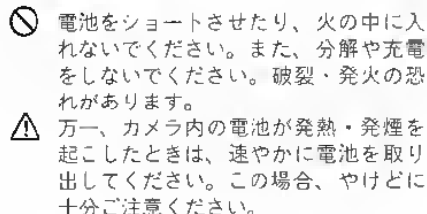 電池をショートさせたり、火の中に入
れないでください。また、分解や充電
をしないでください。破裂・発火の恐
れがあります。
万一、カメラ内の電池が発熱・発煙を
起こしたときは、速やかに電池を取り
出してください。この場合、やけどに
十分ご注意ください。